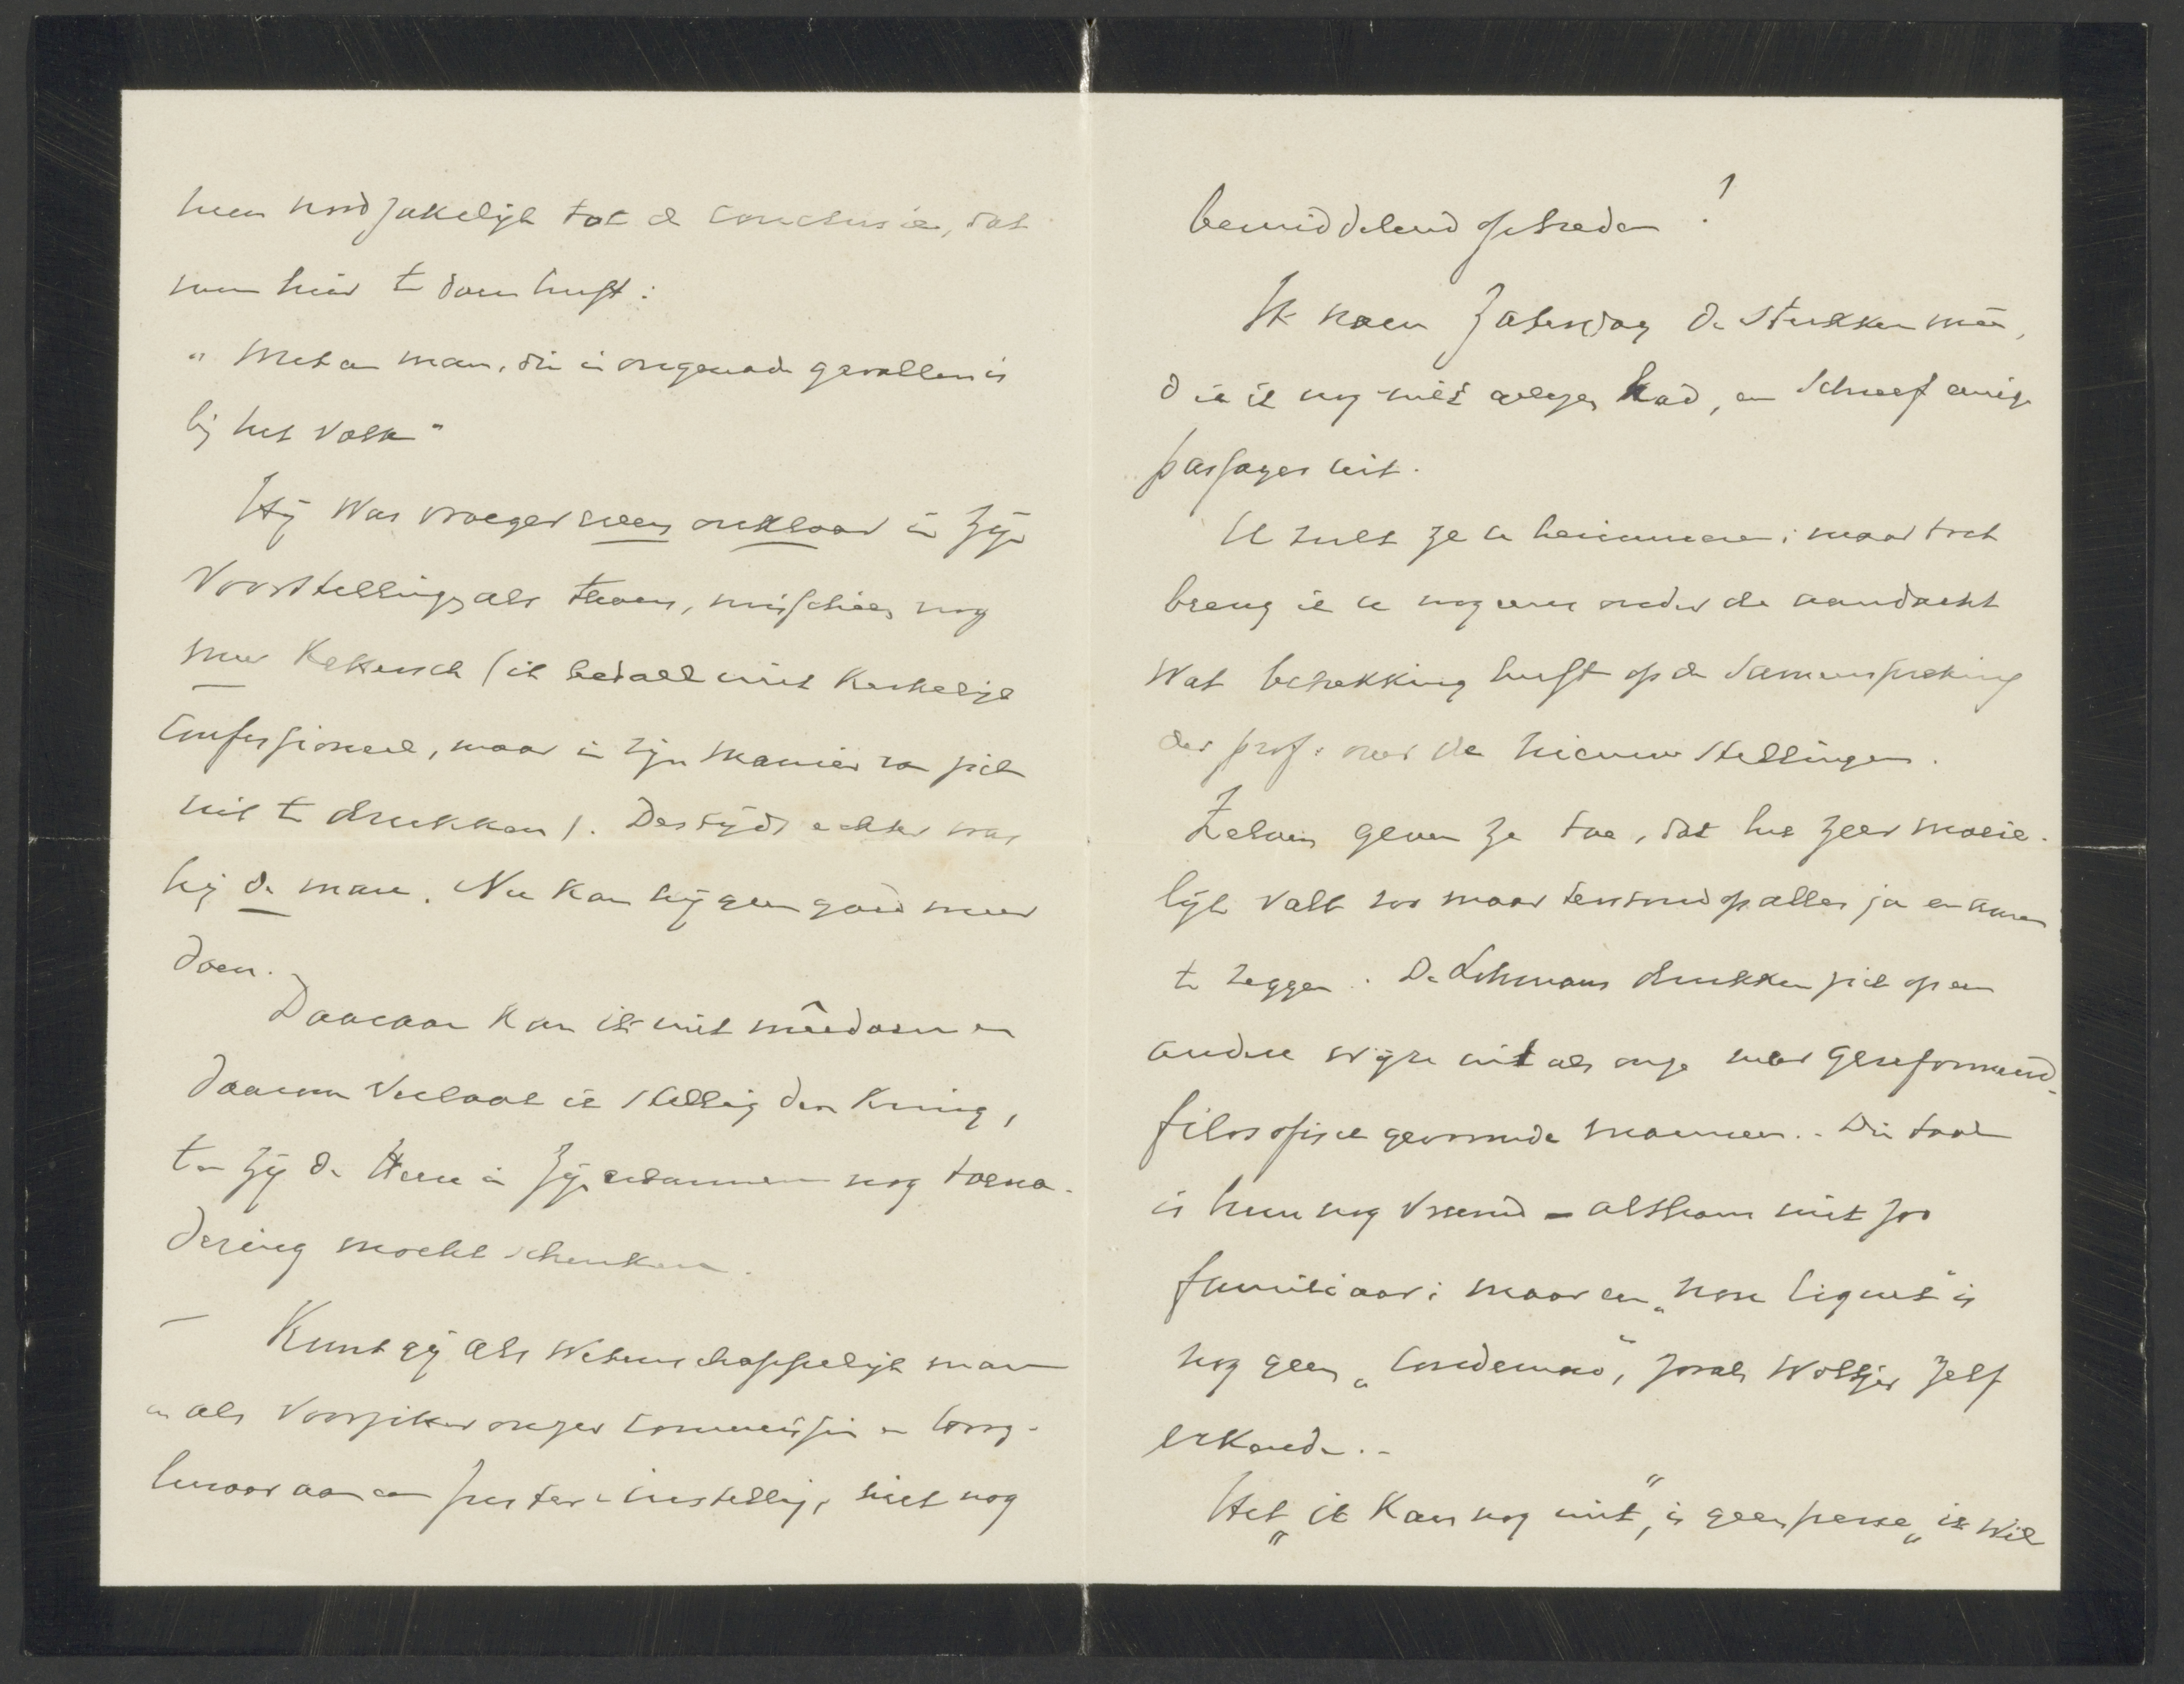 hem noodzakelijk tot de conclusie, dat
men hier te doen heeft:
"Met een man, die in ongenade gevallen is
bij het volk"
Hij was vroeger even onklaar in zijn
voorstellings als thans, misschien nog
meer Ketersch (ik bedoel niet Kerkelijk
Confessioneel, maar in zijn manier van zich
uit te drukken). Destijds echter was
hij de man. Nu kan hij geen goed meer
doen.
Daaraan kan ik niet mêedoen en
daarom verlaat ik stellig den kring,
ten zij de Heere in Zijn erbarmen nog toena-
dering mocht schenken.
Kunt gij als wetenschappelijk man
en als voorzitter onzer commissie en
aan een zuster-instelling, niet nog
bemiddelend optreden?
Ik nam Zaterdag de stukken mêe,
die ik nog niet gelezen had, en schreef eenige
passages uit.
U zult ze u herinneren; maar toch
breng ik u nog eens onder de aandacht
wat betrekking heeft op de samenspreking
der prof: over de nieuwe stellingen.
Zelven geven ze toe, dat het zeer moeie-
lijk valt zoo maar terstond op alles ja en amen
te zeggen. De Lohmans drukken zich op een
andere wijze uit als onze meer gereformeerd-
filosofisch gevormde mannen.. Die taal
is hun nog vreemd - althans niet zoo
familiaar; maar een "non liquet" is
nog geen "condemno", zooals Woltjer zelf
erkende.-
Het "ik kan nog niet", is geen perse "ik wil